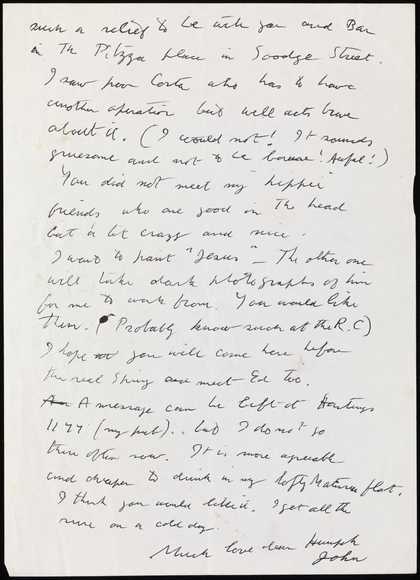 such a relief to be with you and Bar
in The Pitzza place in Goodge Street.
I saw poor Costa who has to have
another operation but will acts brave
about it. (I would not! It sounds
gruesome and not to be borne! Awful!)
You did not meet my 'hippie'
friends who are good in the head
but a bit crazy and nice.
I want to paint "Jesus" - The other one
will take dark photographs of him
for me to work from. You would like
them. (Probably know such at the R.C)
I hope you will come here before
the real Spring and meet Ed too.
A message can be left at
1177 (my pub).. but I do not go
there often now. It is more agreeable
and cheaper to drink in my lofty flat.
I think you would like it. I get all the
sun on a cold day.
Much love dear
John